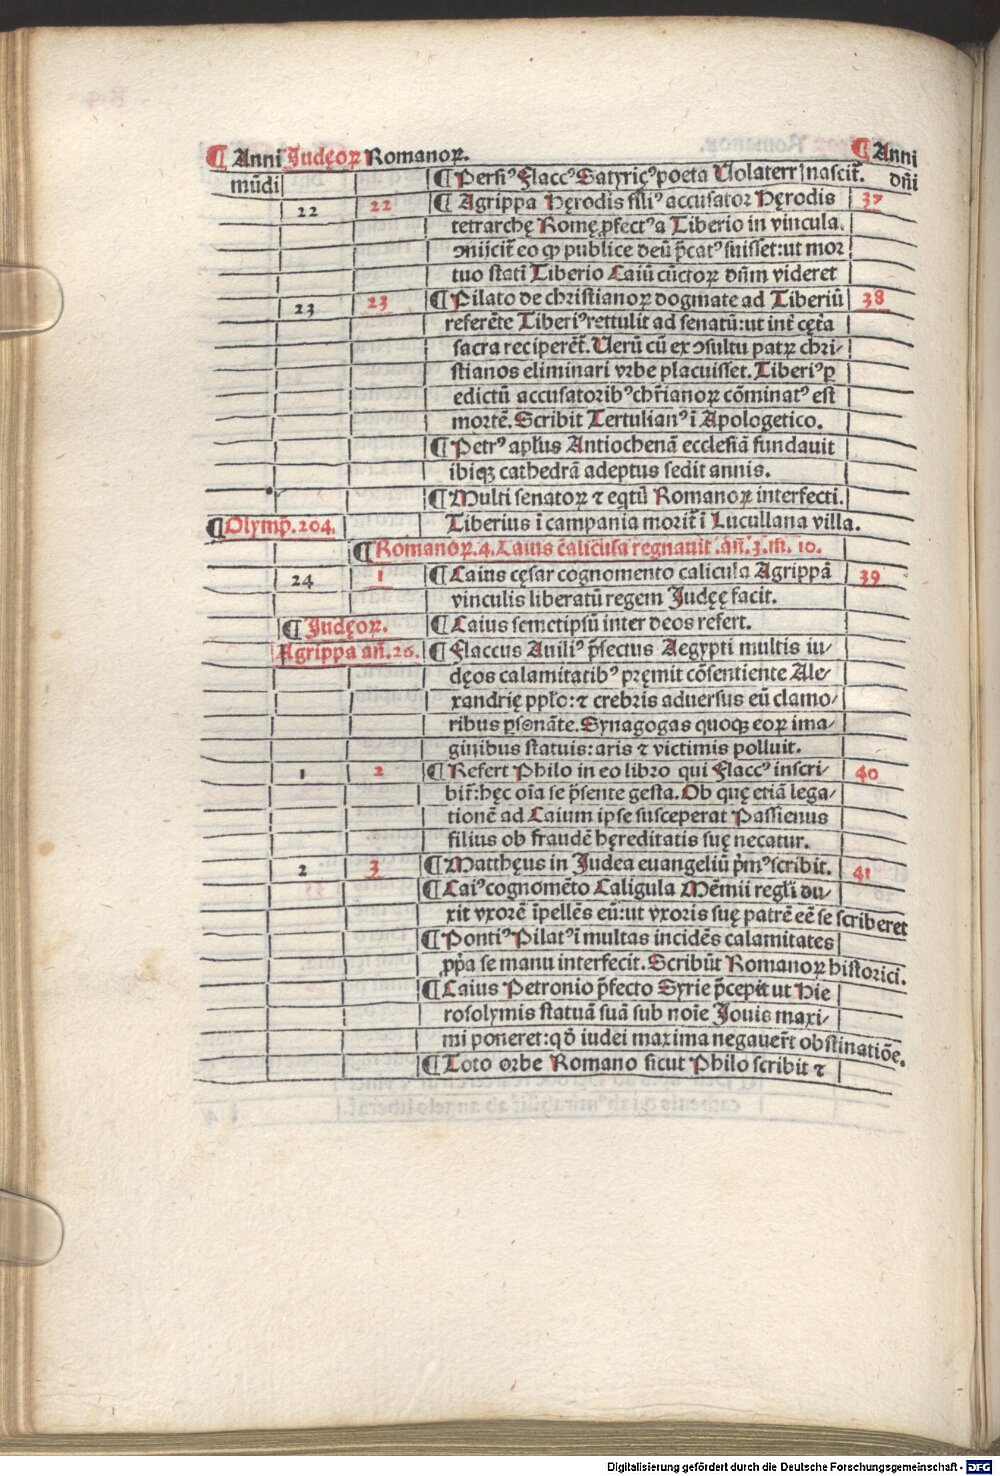 ¶ Anni Judęoꝝ Romanoꝝ. ¶ Anni
mūdi ¶ Persiꝰ Flaccꝰ Satyricꝰ poeta Uolaterr nascit̄. dñi
22 22 ¶ Agrippa Hęrodis filiꝰ accusator Hęrodis 37
tetrarchę Romę ꝓfectꝰ a Tiberio in vincula
ꝯnijcit̄ eo qꝫ publice deū p̄catꝰ fuisset: ut mor
tuo statī Tiberio Caiū cūctoꝝ dn̄m videret
23 23 ¶ Pilato de christianoꝝ dogmate ad Tiberiū 38
referēte Tiberiꝰ rettulit ad senatū: ut int̄ cęt̄a
sacra reciperēt̄. Uerū cū ex ꝯsultu patꝝ chri/
stianos eliminari vrbe placuisset. Tiberiꝰ ꝑ
edictū accusatoribꝰ chr̄ianoꝝ cōminatꝰ est
mortē. Scribit Tertulianꝰ ī Apologetico.
¶ Petrꝰ apl̄us Antiochenā ecclesiā fundauit
ibiqꝫ cathedrā adeptus sedit annis.
¶ Multi senatoꝝ ⁊ eqtū Romanoꝝ interfecti.
¶ Olymp̄. 204. Tiberius ī campania morit̄ ī Lucullana villa.
¶ Romanoꝝ. 4. Caius c̄alicula regnauit .añ. 3. m̄. 10.
24 1 ¶ Caius cęsar cognomento calicula Agrippā 39
vinculis liberatū regem Judęę facit.
¶ Judęoꝝ. ¶ Caius semetipsū inter deos refert.
Agrippa añ. 26. ¶ Flaccus Auiliꝰ p̄fectus Aegypti multis iu/
dęos calamitatibꝰ pręmit cōsentiente Ale/
xandrię ppl̄o: ⁊ crebris aduersus eū clamo/
ribus ꝑsonāte. Synagogas quoqꝫ eoꝝ ima/
ginibus statuis: aris ⁊ victimis polluit.
1 2 ¶ Refert Philo in eo libro qui Flaccꝰ inscri/ 40
bit̄: hęc oīa se p̄sente gesta. Ob quę etiā lega/
tionē ad Caium ipse susceperat Passienus
filius ob fraudē hęreditatis suę necatur.
2 3 ¶ Matthęus in Judea euangeliū p̄mꝰ scribit. 41
¶ Caiꝰ cognomēto Caligula Mēmii regl̄i du/
xit vxorē īpellēs eū: ut vxoris suę patrē eē se scriberet
¶ Pontiꝰ Pilatꝰ ī multas incidēs calamitates
ꝓpa se manu interfecit. Scribūt Romanoꝝ historici.
¶ Caius Petronio p̄fecto Syrie p̄cepit ut Hie
rosolymis statuā suā sub noīe Jouis maxi/
mi poneret: qđ iudei maxima negauer̄t obstinatiōe.
¶ Toto orbe Romano sicut Philo scribit ⁊
Digitalisierung gefördert durch die Deutsche Forschungsgemeinschaft - DFG